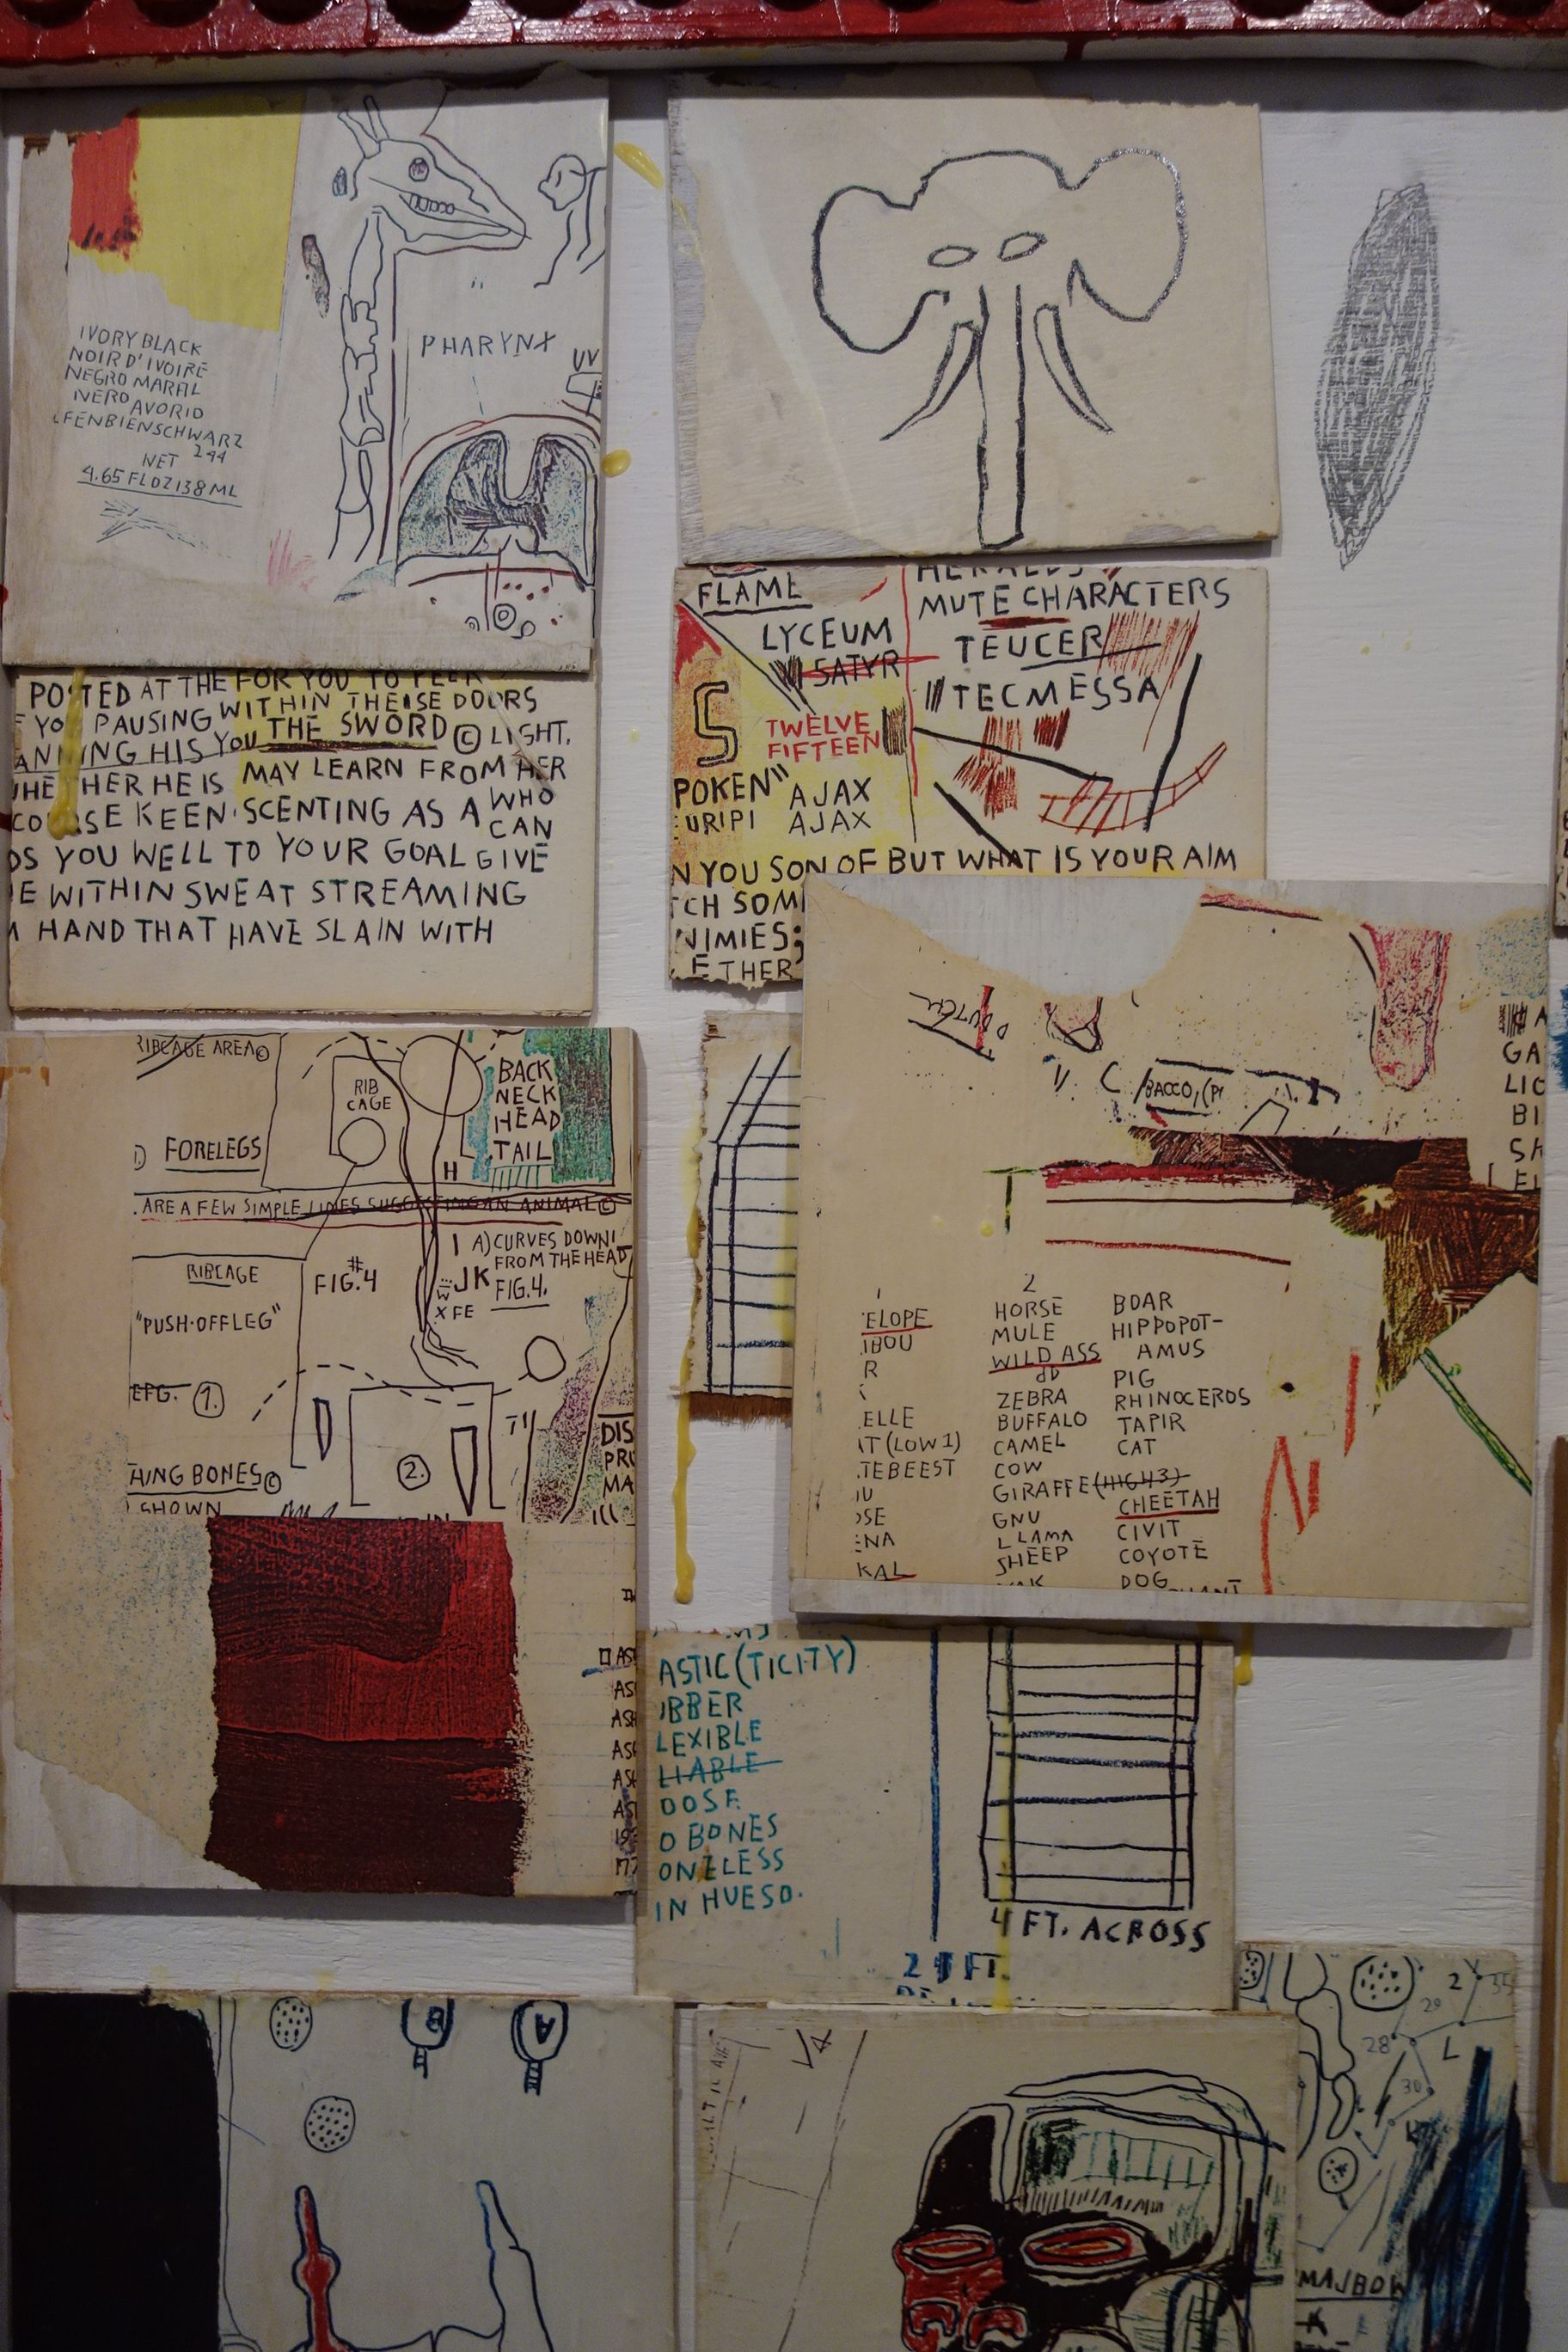 IVORY BLACK
NOIR D'IVOIRE
NEGRO MARFIL
NERO AVORIO
FENBIENSCHWARZ
244
NET
4.65 FLOZ 138 ML
PHARYNX
UV
POSTED AT THE FOR YOU TO PEER
YOU PAUSING WITHIN THEISE DOORS
ANNING HIS YOU THE SWORD © LIGHT.
HE THER HE IS MAY LEARN FROM HER
COURSE KEEN·SCENTING AS A WHO
CAN
DS YOU WELL TO YOUR GOAL GIVE
E WITHIN SWEAT STREAMING
HAND THAT HAVE SLAIN WITH
FLAME
LYCEUM
SATYR
S TWELVE
FIFTEEN
POKEN" AJAX
URIPI AJAX
HERALDS
MUTE CHARACTERS
TEUCER
TECMESSA
N YOU SON OF BUT WHAT IS YOUR AIM
TCH SOM
NIMIES;
ETHER
RIBCAGE AREA©
RIB
CAGE
BACK
NECK
HEAD
TAIL
H
D) FORELEGS
ARE A FEW SIMPLE LINES SUGGESTING AN ANIMAL©
RIBCAGE
FIG.#4
"PUSH·OFFLEG"
A) CURVES DOWN
FROM THE HEAD
JK FIG.4.
X FE
EFG. 1.
2.
HING BONES©
SHOWN
DIS
PRO
MA
BACCO, (P
A
GA
LIC
BI
SH
EL
T
1
ELOPE
IBOU
R
ELLE
T (LOW 1)
TEBEEST
U
OSE
ENA
KAL
2
HORSE
MULE
WILD ASS
ZEBRA
BUFFALO
CAMEL
COW
GIRAFFE (HIGH 3)
GNU
LLAMA
SHEEP
YAK
BOAR
HIPPOPOT-
AMUS
PIG
RHINOCEROS
TAPIR
CAT
CHEETAH
CIVIT
COYOTE
DOG
ASTIC (TICITY)
UBBER
LEXIBLE
LIABLE
OOSE
O BONES
ONELESS
IN HUESO.
4 FT. ACROSS
FT.
B
A
2
35
29
28
L
30
MAJBOW
K